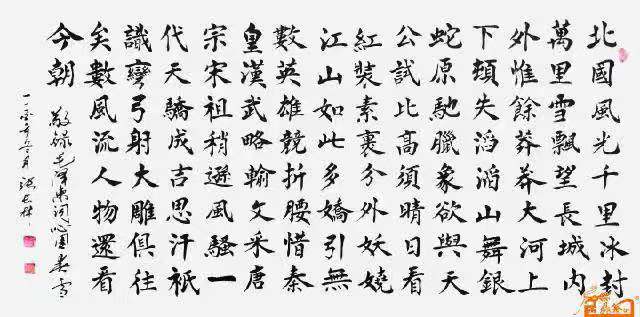 北國風光千里冰封
萬里雪飄望長城内
外惟餘莽莽大河上
下頓失滔滔山舞銀
蛇原馳臘象欲與天
公試比高須晴日看
紅裝素裹分外妖嬈
江山如此多嬌引無
數英雄競折腰惜秦
皇漢武略輸文采唐
宗宋祖稍遜風騷一
代天驕成吉思汗衹
識彎弓射大雕俱往
矣數風流人物還看
今朝
敬録毛澤東詞沁園春雪